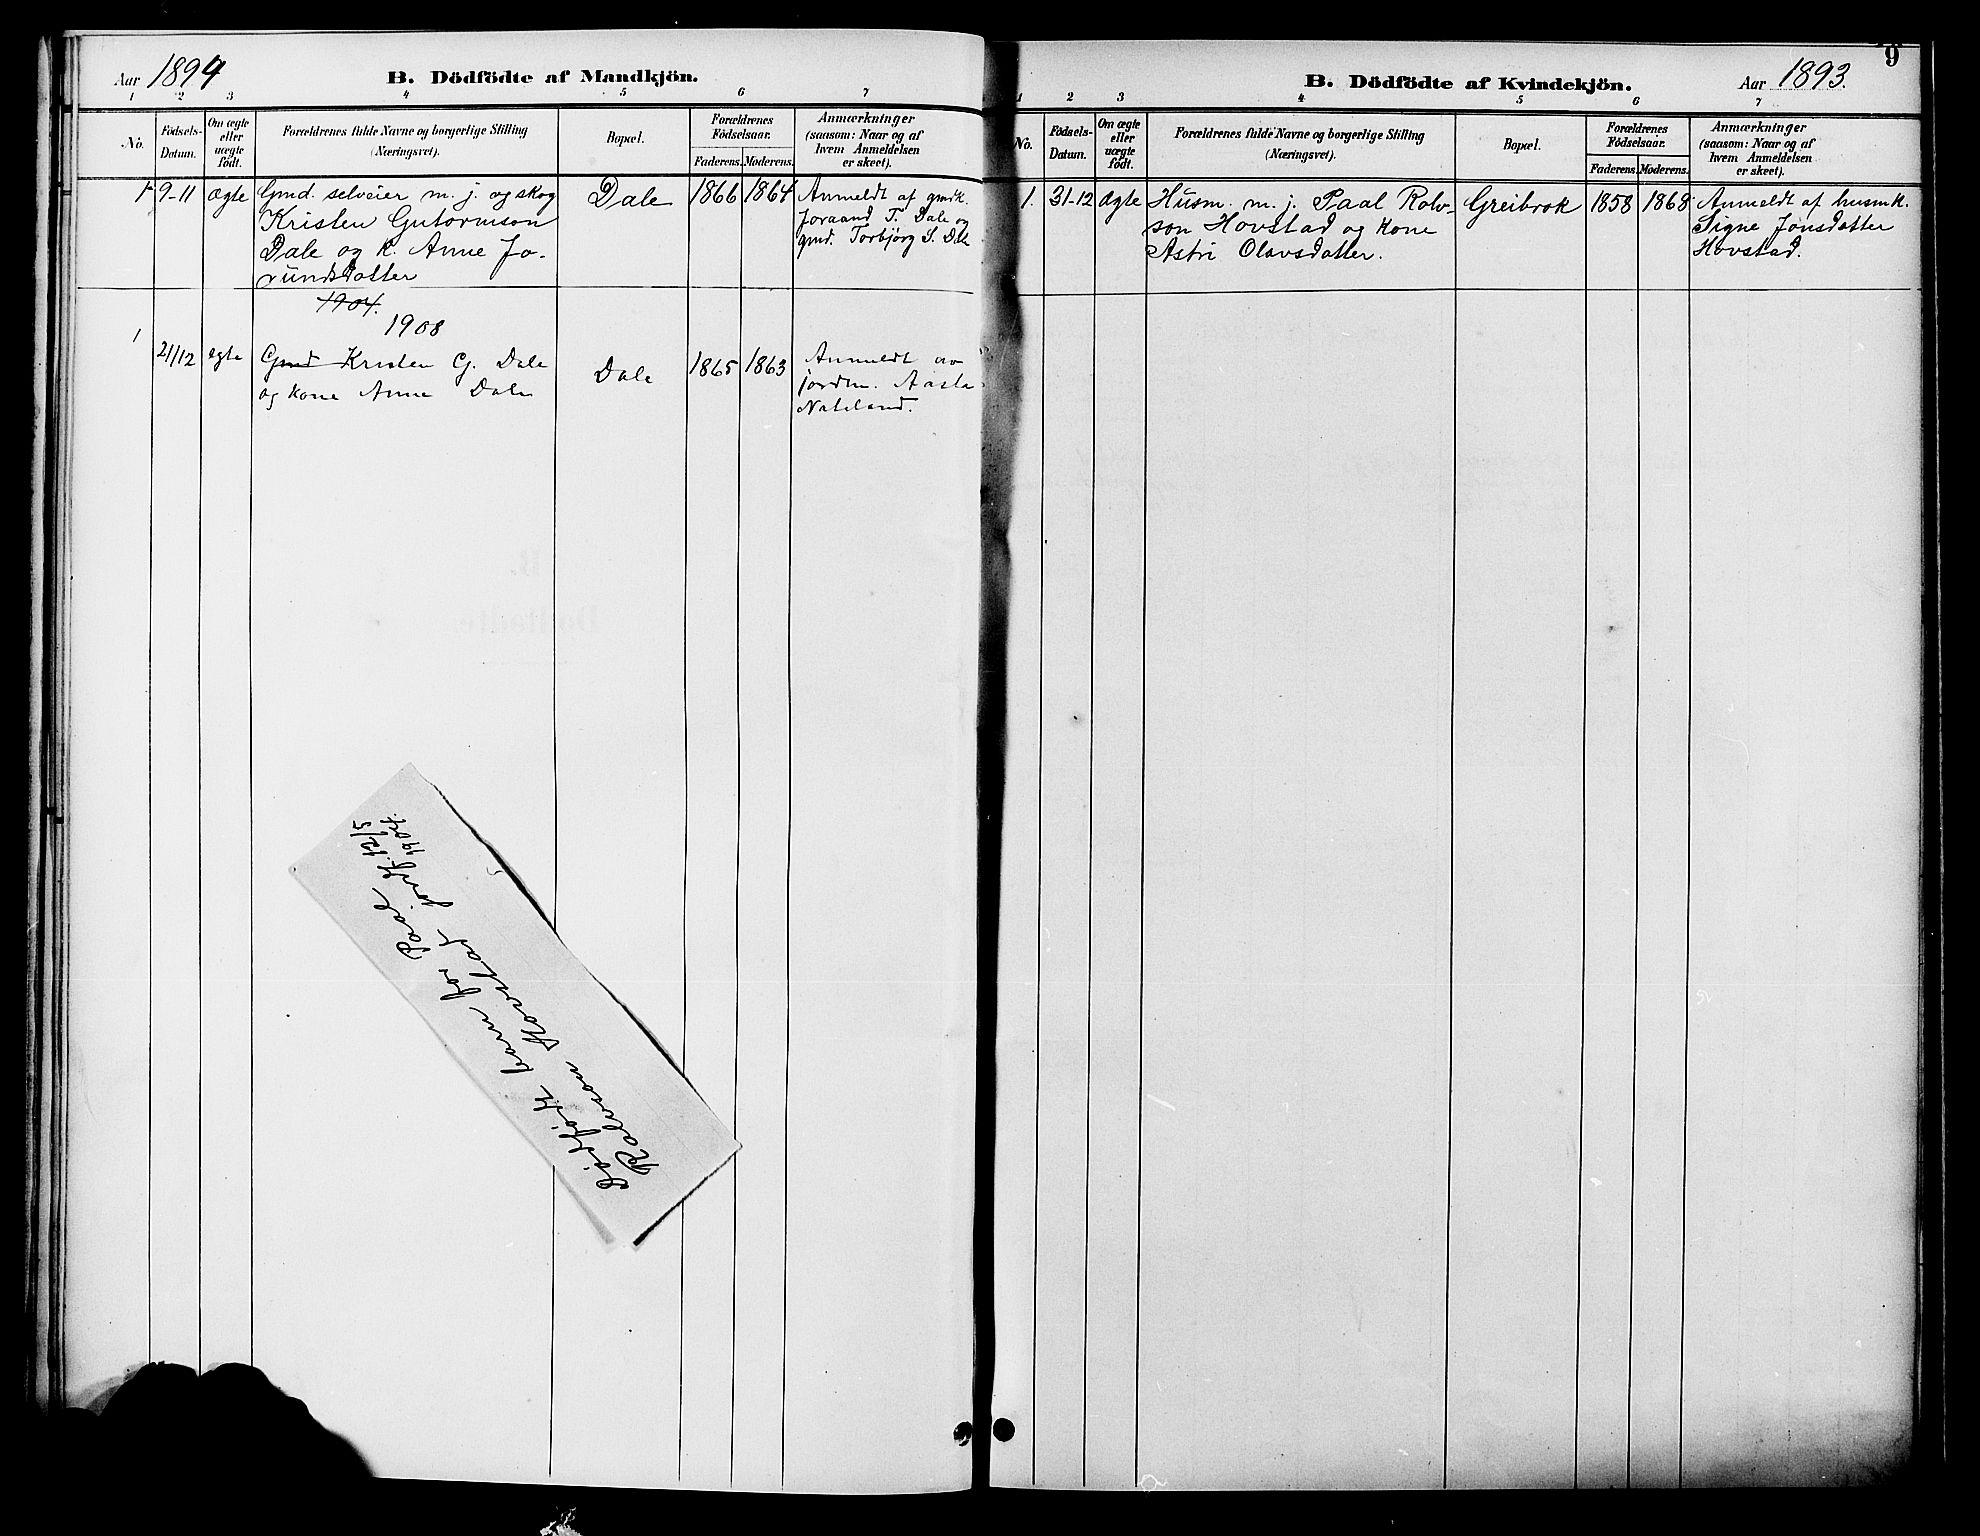 Aar 1894
B. Dödfödte af Mandkjön.
1 2 3 4 5 6 7
No.
Födsels-
Datum.
Om ægte
eller
uægte
födt.
Forældrenes fulde Navne og borgerlige Stilling
(Næringsvei).
Bopæl.
Forældrenes
Födselsaar.
Faderens. Moderens.
Anmærkninger
(saasom: Naar og af
hvem Anmeldelsen
er skeet).
1 9-11 ægte
Gmd. selveier m. j. og skog
Kristen Gutormson
Dale og k. Anne Jo-
rundsdatter
Dale
1866 1864
Anmeldt af gmdk.
Joraand T. Dale og
gmd. Torbjörg S. Dale
1904.
1908
1
21/12 egte
Gmd Kristen G. Dale
og kone Anne Dale
Dale
1865 1863
Anmeldt av
jordm. Aasta
Nateland.
Dödfödt barn for Paal
Rolvson Hovstad jordf. 12/5
1904.
9
B. Dödfödte af Kvindekjön.
Aar 1893.
1 2 3 4 5 6 7
No.
Födsels-
Datum.
Om ægte
eller
uægte
födt.
Forældrenes fulde Navne og borgerlige Stilling
(Næringsvei).
Bopæl.
Forældrenes
Födselsaar.
Faderens. Moderens.
Anmærkninger
(saasom: Naar og af
hvem Anmeldelsen
er skeet).
1. 31-12 ægte
Husm. m. j. Paal Rolv-
son Hovstad og kone
Astri Olavsdatter.
Greibrok
1858 1868
Anmeldt af husmk.
Signe Jonsdatter
Hovstad.